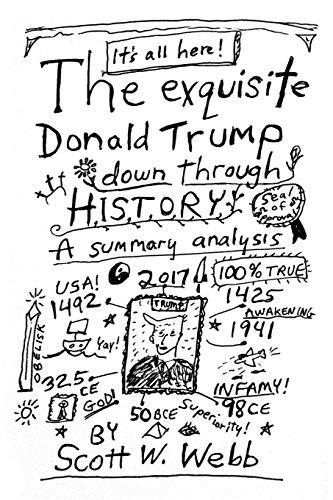 It's all here!
The exquisite
Donald Trump
down through
H.I.S.T.O.R.Y.!
Seal of approval
A summary analysis
2017
100% TRUE
USA!
1492
1425
AWAKENING
TRUMP
1941
Yay!
OBELISK
325 CE
GOD!
INFAMY!
50 BCE
Superiority!
98 CE
BY
Scott W. Webb